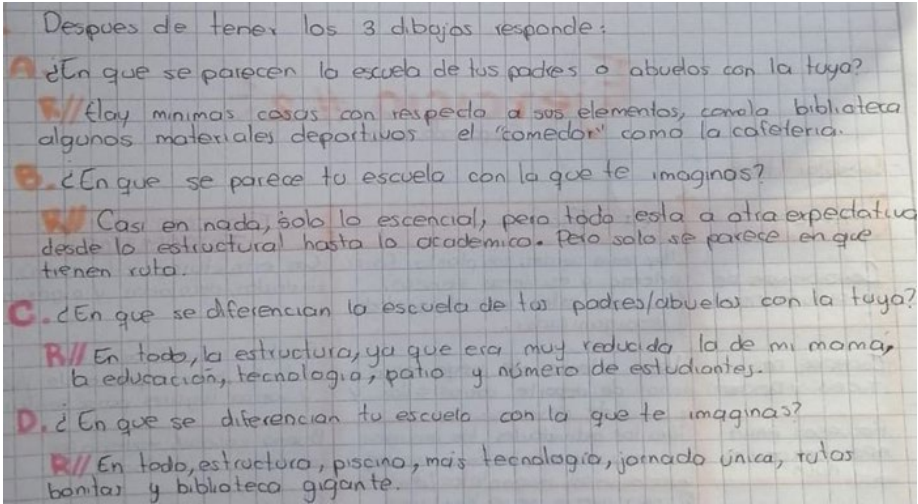 Despues de tener los 3 dibojos responde:
A ¿En que se parecen la escuela de tus padres o abuelos con la tuya?
R// Hay minimas cosas con respecto a sus elementos, como la biblioteca
algunos materiales deportivos el "comedor" como la cafeteria.
B. ¿En que se parece tu escuela con la que te imaginas?
R// Casi en nada, solo lo escencial, pero todo esta a otra expectativa
desde lo estructural hasta lo academico. Pero solo se parece en que
tienen ruta.
C. ¿En que se diferencian la escuela de tus padres/abuelos con la tuya?
R// En todo, la estructura, ya que era muy reducida la de mi mama,
la educación, tecnologia, patio y número de estudiantes.
D. ¿En que se diferencian tu escuela con la que te imaginas?
R// En todo, estructura, piscina, más tecnologia, jornada única, rutas
bonitas y biblioteca gigante.